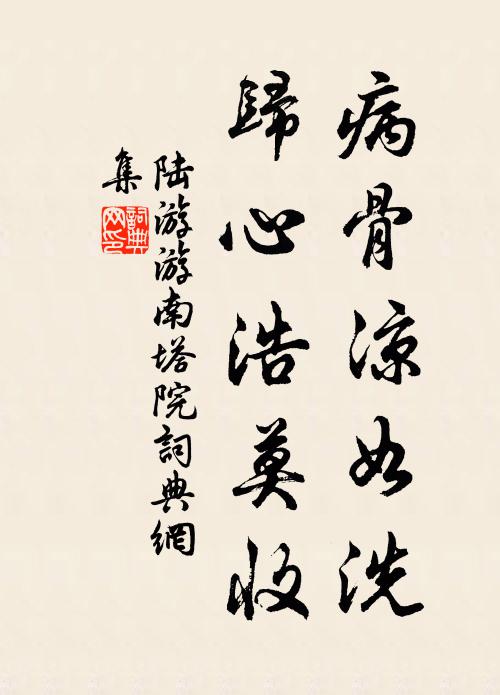 病骨凉如洗
歸心浩莫收
陆游游南塔院詞典網
集
詞典
网印